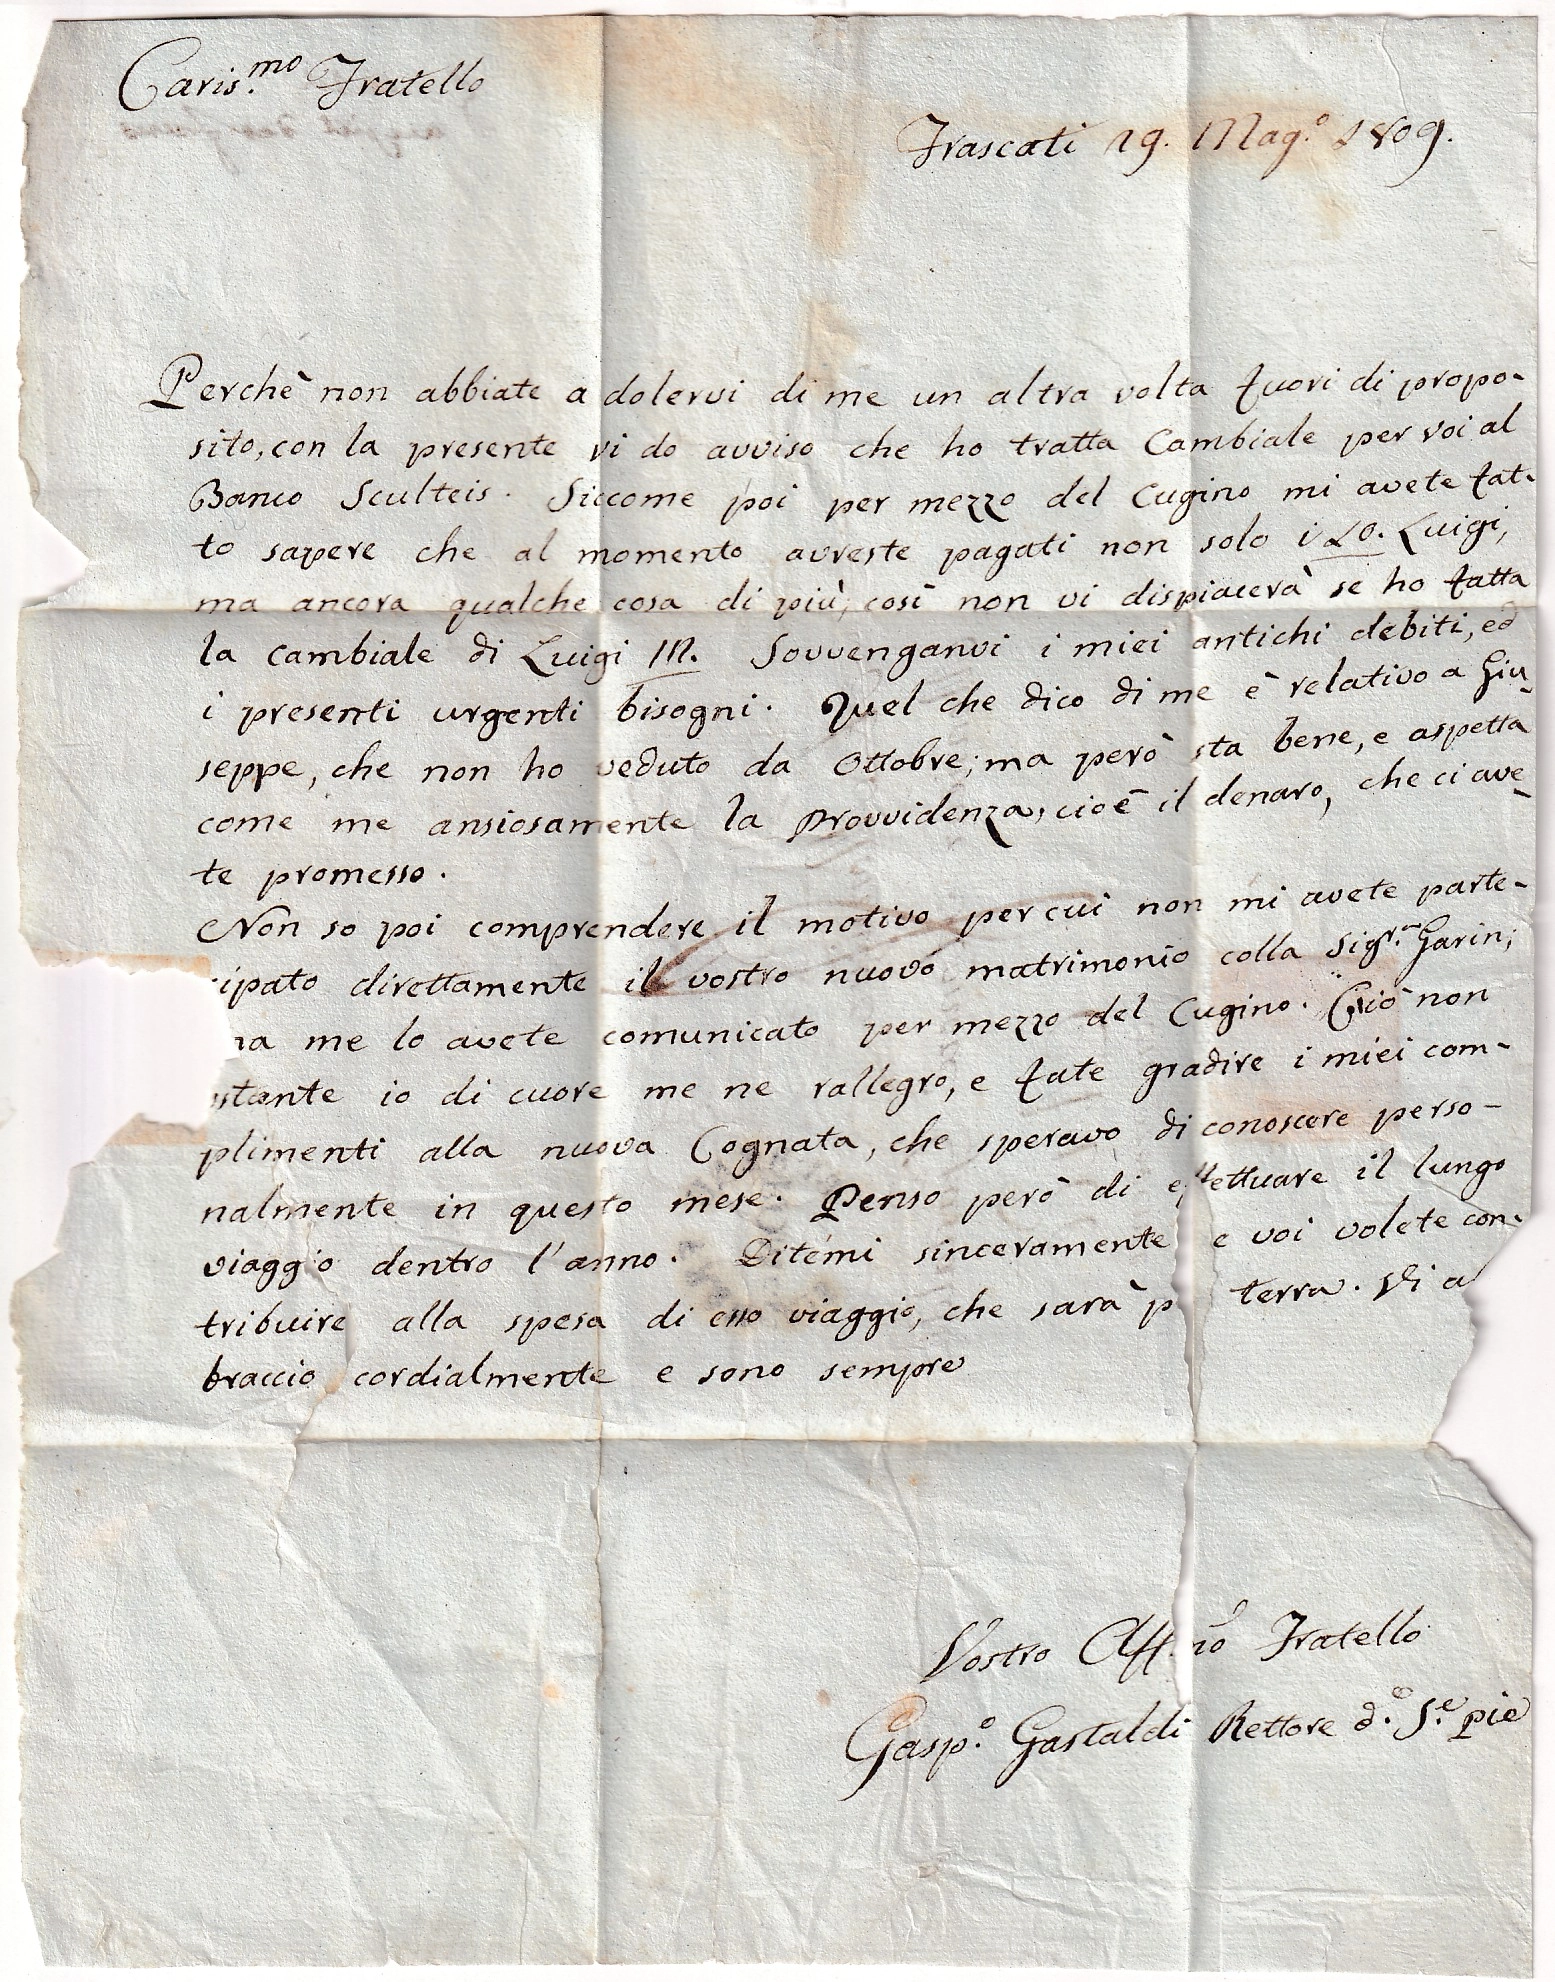 Caris.mo Fratello
Frascati 19. Mag.o 1809.
Perchè non abbiate a dolervi di me un altra volta fuori di propo-
sito, con la presente vi do avviso che ho tratta Cambiale per voi al
Banco Sculteis. Siccome poi per mezzo del Cugino mi avete fat-
to sapere che al momento avreste pagati non solo i 20. Luigi,
ma ancora qualche cosa di più, così non vi dispiacerà se ho fatta
la cambiale di Luigi Sovvenganvi i miei antichi debiti, ed
i presenti urgenti bisogni. Quel che dico di me è relativo a Giu-
seppe, che non ho veduto da Ottobre; ma però sta bene, e aspetta
come me ansiosamente la Provvidenza, cioè il denaro, che ci ave-
te promesso.
Non so poi comprendere il motivo per cui non mi avete parte-
cipato direttamente il vostro nuovo matrimonio colla Sigr.a Garin;
ma me lo avete comunicato per mezzo del Cugino. Ciò non
ostante io di cuore me ne rallegro, e fate gradire i miei com-
plimenti alla nuova Cognata, che speravo di conoscere perso-
nalmente in questo mese. Penso però di effettuare il lungo
viaggio dentro l'anno. Ditemi sinceramente e voi volete con-
tribuire alla spesa di esso viaggio, che sarà p terra. Vi a
braccio cordialmente e sono sempre
Vostro Aff.mo Fratello
Gasp.o Gastaldi Rettore d.e S.e pie